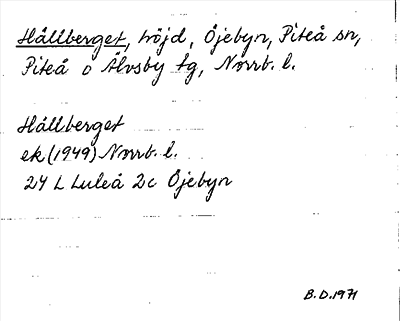 Hållberget, höjd, Öjebyn, Piteå sn,
Piteå o Älvsby tg, Norrb. l.
Hållberget
ek (1949) Norrb. l.
24 L Luleå 2c Öjebyn
B.D.1971